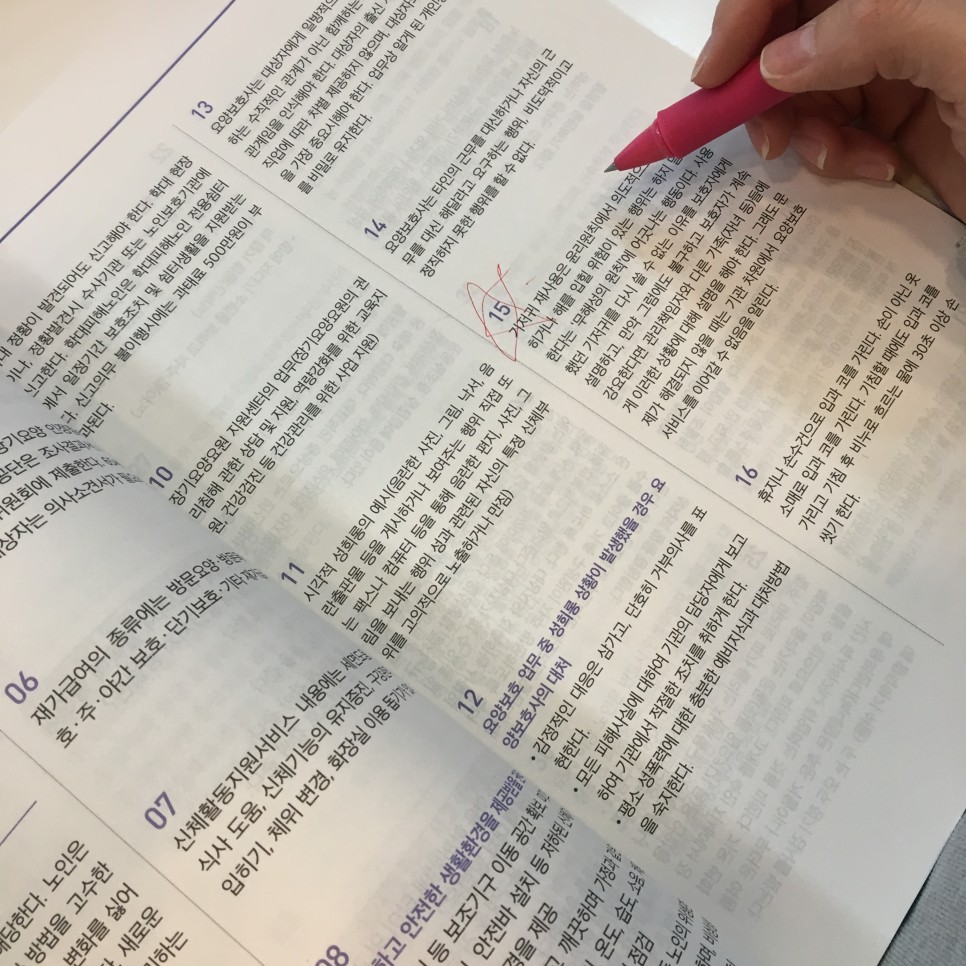 해당한다. 노인은
방법을 고수한
변화를 싫어
새로운
하는
위원회에 제출한다.
상자는 의사소견서가
06
재가급여의 종류에는 방문요양
호·주·야간 보호·단기보호·기타
07
신체활동지원서비스 내용에는
식사 도움, 신체기능의 유지증진
입히기, 체위 변경, 화장실 이용
08
하고 안전한 생활환경을
등 보조기구 이동 공간 확보
안전바 설치 등
을 제공
깨끗하며
온도, 습도,
점검
정황이 발견되어도 신고해야 한다. 학대 현장
정황발견시 수사기관 또는 노인보호기관에
신고한다. 학대피해노인은 학대피해노인 전용쉼터
에서 일정기간 보호조치 및 쉼터생활을 지원받는
다. 신고의무 불이행시에는 과태료 500만원이 부
과된다.
10
장기요양요원 지원센터의 업무(장기요양요원의 권
리침해 관한 상담 및 지원, 역량강화를 위한 교육지
원, 건강검진 등 건강관리를 위한 사업 지원)
11
시각적 성희롱의 예시(음란한 사진, 그림, 낙서, 음
란출판물 등을 게시하거나 보여주는 행위, 직접 또
는 팩스나 컴퓨터 등을 통해 음란한 편지, 사진, 그
림을 보내는 행위, 성과 관련된 자신의 특정 신체부
위를 고의적으로 노출하거나 만짐)
12
요양보호 업무 중 성희롱 상황이 발생했을 경우 요
양보호사의 대처
• 감정적인 대응은 삼가고, 단호히 거부의사를 표
현한다.
• 모든 피해사실에 대하여 기관의 담당자에게 보고
하여 기관에서 적절한 조치를 취하게 한다.
• 평소 성폭력에 대한 충분한 예비지식과 대처방법
을 숙지한다.
13
요양보호사는 대상자에게 일방적으
하는 수직적인 관계가 아닌 함께하는
관계임을 인식해야 한다. 대상자의 출신
직업에 따라 차별 제공하지 않으며, 대상자
을 가장 중요시해야 한다. 업무상 알게 된 개인
를 비밀로 유지한다.
14
요양보호사는 타인의 근무를 대신하거나 자신의 근
무를 대신 해달라고 요구하는 행위, 비도덕적이고
정직하지 못한 행위를 할 수 없다.
15
기저귀 재사용은 윤리원칙에서 의도적으
히거나 해를 입힐 위험이 있는 행위는 하지 말
한다는 무해성의 원칙에 어긋나는 행동이다. 사용
했던 기저귀를 다시 쓸 수 없는 이유를 보호자에게
설명하고, 만약 그럼에도 불구하고 보호자가 계속
강요한다면 관리책임자와 다른 가족(자녀 등)들에
게 이러한 상황에 대해 설명을 해야 한다. 그래도 문
제가 해결되지 않을 때는 기관 차원에서 요양보호
서비스를 이어갈 수 없음을 알린다.
16
휴지나 손수건으로 입과 코를 가린다. 손이 아닌 옷
소매로 입과 코를 가린다. 기침할 때에도 입과 코를
가리고, 기침 후 비누로 흐르는 물에 30초 이상 손
씻기 한다.